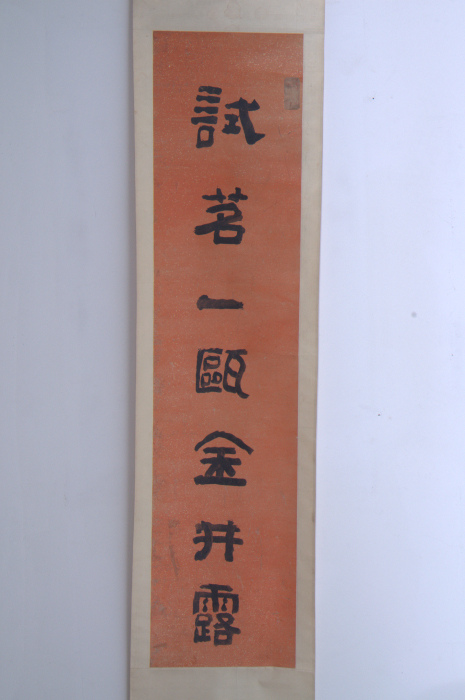 試茗一甌金井露